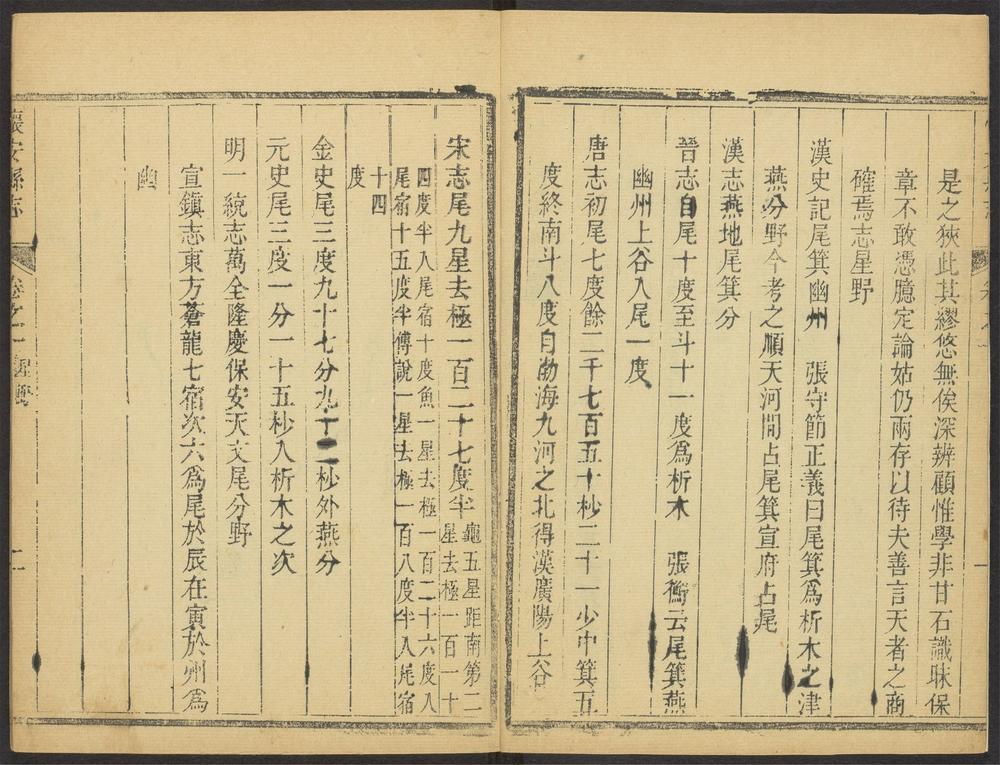 是之狹此其繆悠無俟深辨顧惟學非甘石識昧保
章不敢憑臆定論姑仍兩存以待夫善言天者之商
確焉志星野
漢史記尾箕幽州　張守節正義曰尾箕爲析木之津
燕分野今考之順天河間占尾箕宣府占尾
漢志燕地尾箕分
晉志自尾十度至斗十一度爲析木　張衡云尾箕燕
幽州上谷入尾一度
唐志初尾七度餘二千七百五十秒二十一少中箕五
度終南斗八度自渤海九河之北得漢廣陽上谷
宋志尾九星去極一百二十七度半
龜五星距南第二
星去極一百一十
四度半入尾宿十度魚一星去極一百二十六度入
尾宿十五度半傅說一星去極一百八度半入尾宿
十四
度
金史尾三度九十七分九十二秒外燕分
元史尾三度一分一十五秒入析木之次
明一統志萬全隆慶保安天文尾分野
宣鎮志東方蒼龍七宿次六爲尾於辰在寅於州爲
幽
懷安縣志
卷之一